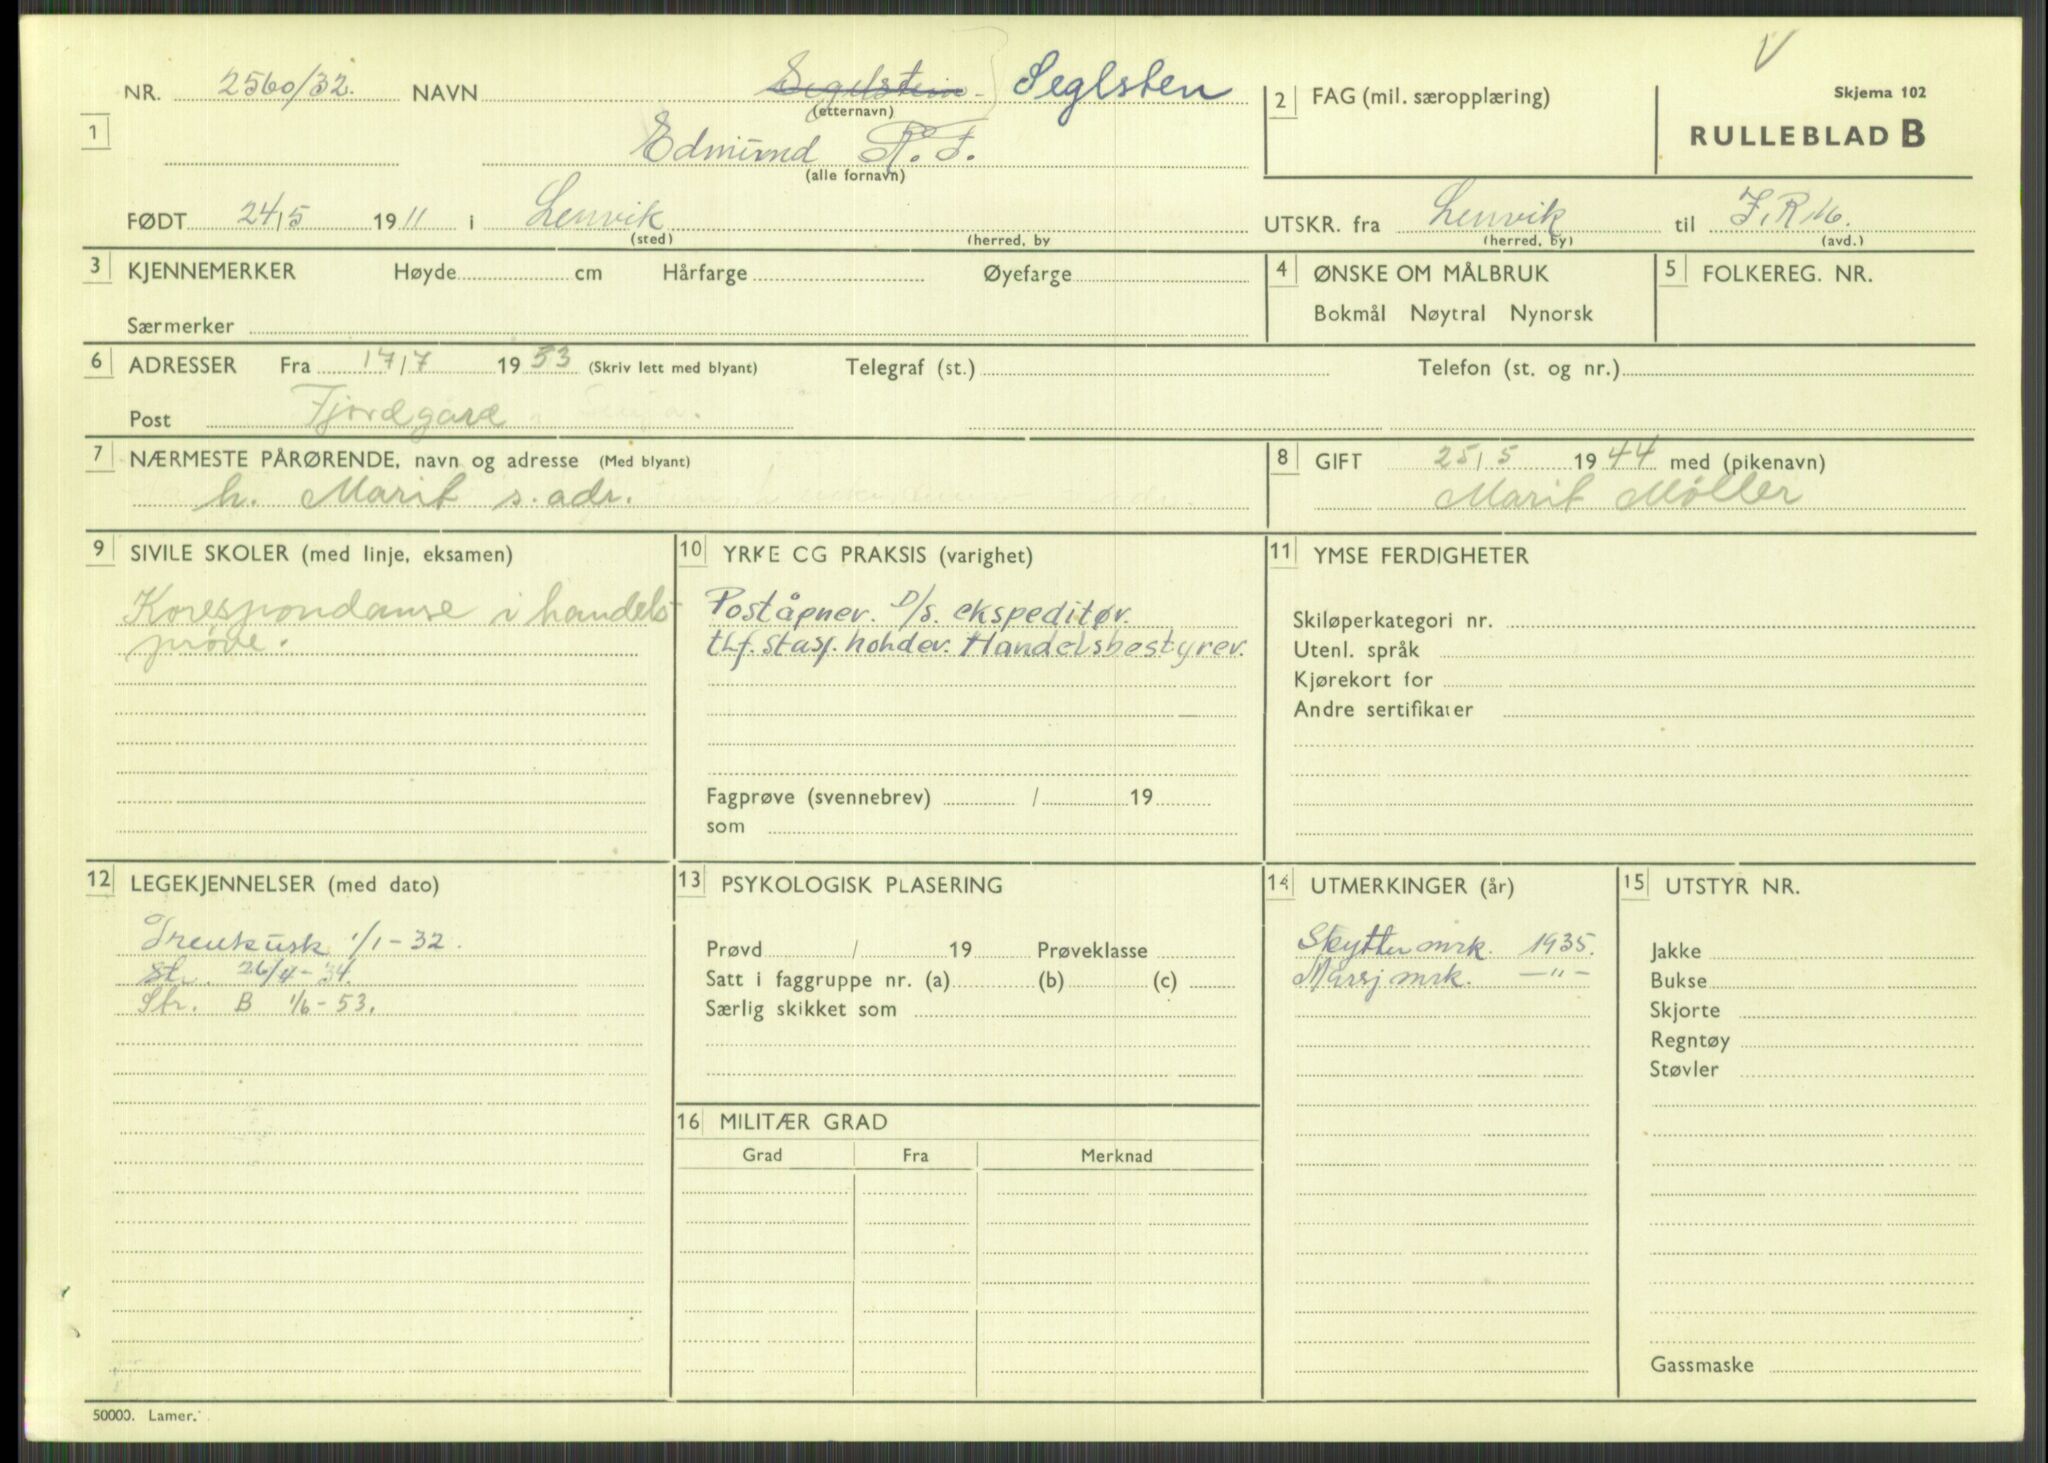 V
NR. 2560/32. NAVN Segelstein Seglsten
(etternavn)
1 Edmund R. F.
(alle fornavn)
2 FAG (mil. særopplæring)
Skjema 102
RULLEBLAD B
FØDT 24/5 1911 i Lenvik
(sted) (herred, by
UTSKR. fra Lenvik til I.R.16.
(herred, by) (avd.)
3 KJENNEMERKER Høyde cm Hårfarge Øyefarge
Særmerker
4 ØNSKE OM MÅLBRUK
Bokmål Nøytral Nynorsk
5 FOLKEREG. NR.
6 ADRESSER Fra 17/7 1953 (Skriv lett med blyant) Telegraf (st.) Telefon (st. og nr.)
Post Fjordgård
7 NÆRMESTE PÅRØRENDE, navn og adresse (Med blyant)
h. Marit s. adr.
8 GIFT 25/5 1944 med (pikenavn)
Marit Møller
9 SIVILE SKOLER (med linje, eksamen)
Korespondanse i handels-
prøve.
10 YRKE CG PRAKSIS (varighet)
Poståpner. D/s. ekspeditør.
tlf. stasj. hohder. Handelsbestyrer.
Fagprøve (svennebrev) / 19
som
11 YMSE FERDIGHETER
Skiløperkategori nr.
Utenl. språk
Kjørekort for
Andre sertifikater
12 LEGEKJENNELSER (med dato)
Trenkusk 1/1-32.
Str. 26/4-34.
Str. B 1/6-53.
13 PSYKOLOGISK PLASERING
Prøvd / 19 Prøveklasse
Satt i faggruppe nr. (a) (b) (c)
Særlig skikket som
14 UTMERKINGER (år)
Skyttermrk. 1935.
Marsjmrk. —"—
15 UTSTYR NR.
Jakke
Bukse
Skjorte
Regntøy
Støvler
Gassmaske
16 MILITÆR GRAD
Grad Fra Merknad
50000. Lamer.